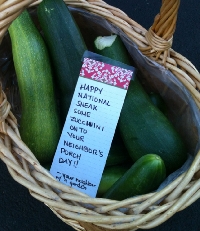 HAPPY
NATIONAL
SNEAK
SOME
ZUCCHINI
ON TO
YOUR
NEIGHBOR'S
PORCH
DAY!!